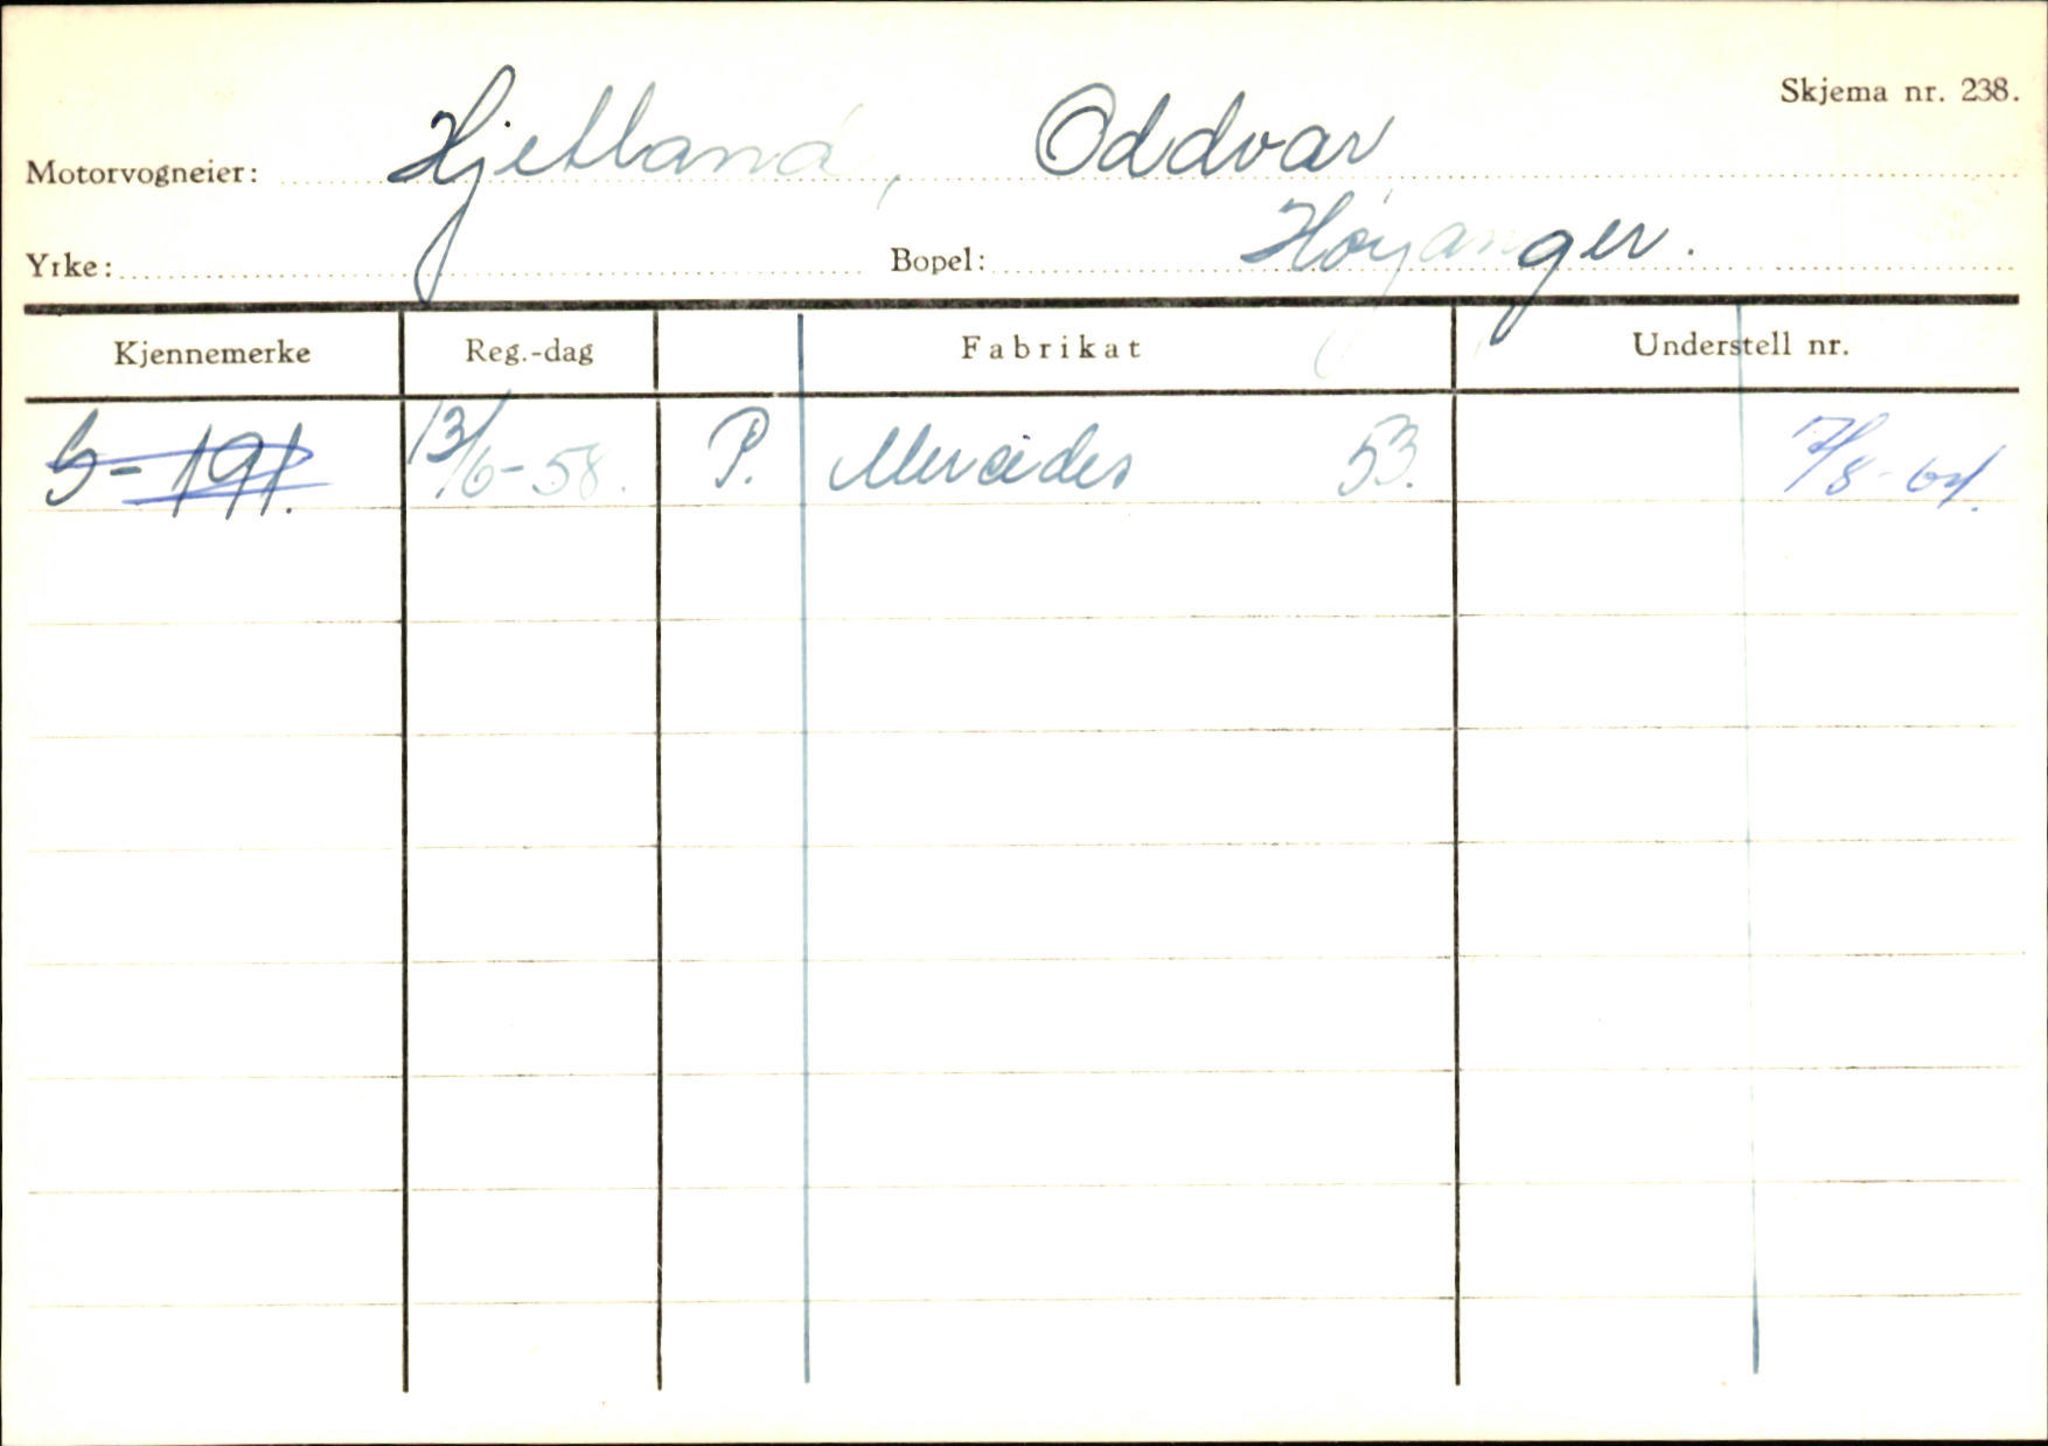 Skjema nr. 238.
Motorvogneier: Hjetland, Oddvar
Yrke: Bopel: Høyanger.
Kjennemerke Reg.-dag Fabrikat Understell nr.
S-191. 13/6-58. P. Mercedes 53. 7/8-64.